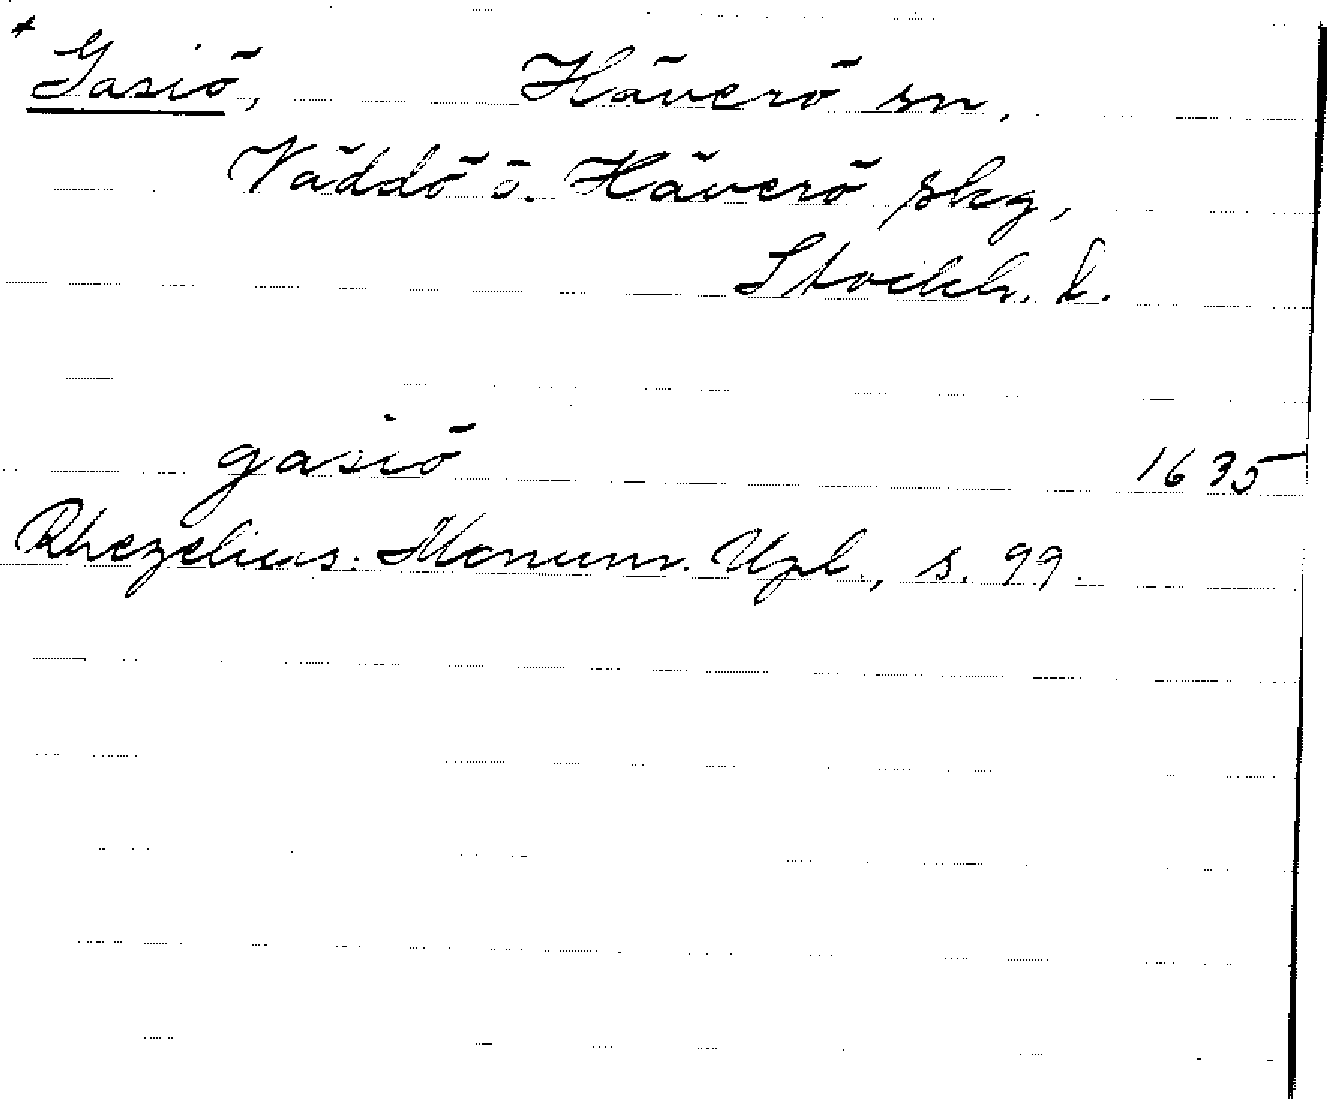 * Gasiö, Häverö sn,
Väddö o. Häverö skg,
Stockh. l.
gasiö 1635
Rhezelius: Monum. Upl., s. 99.